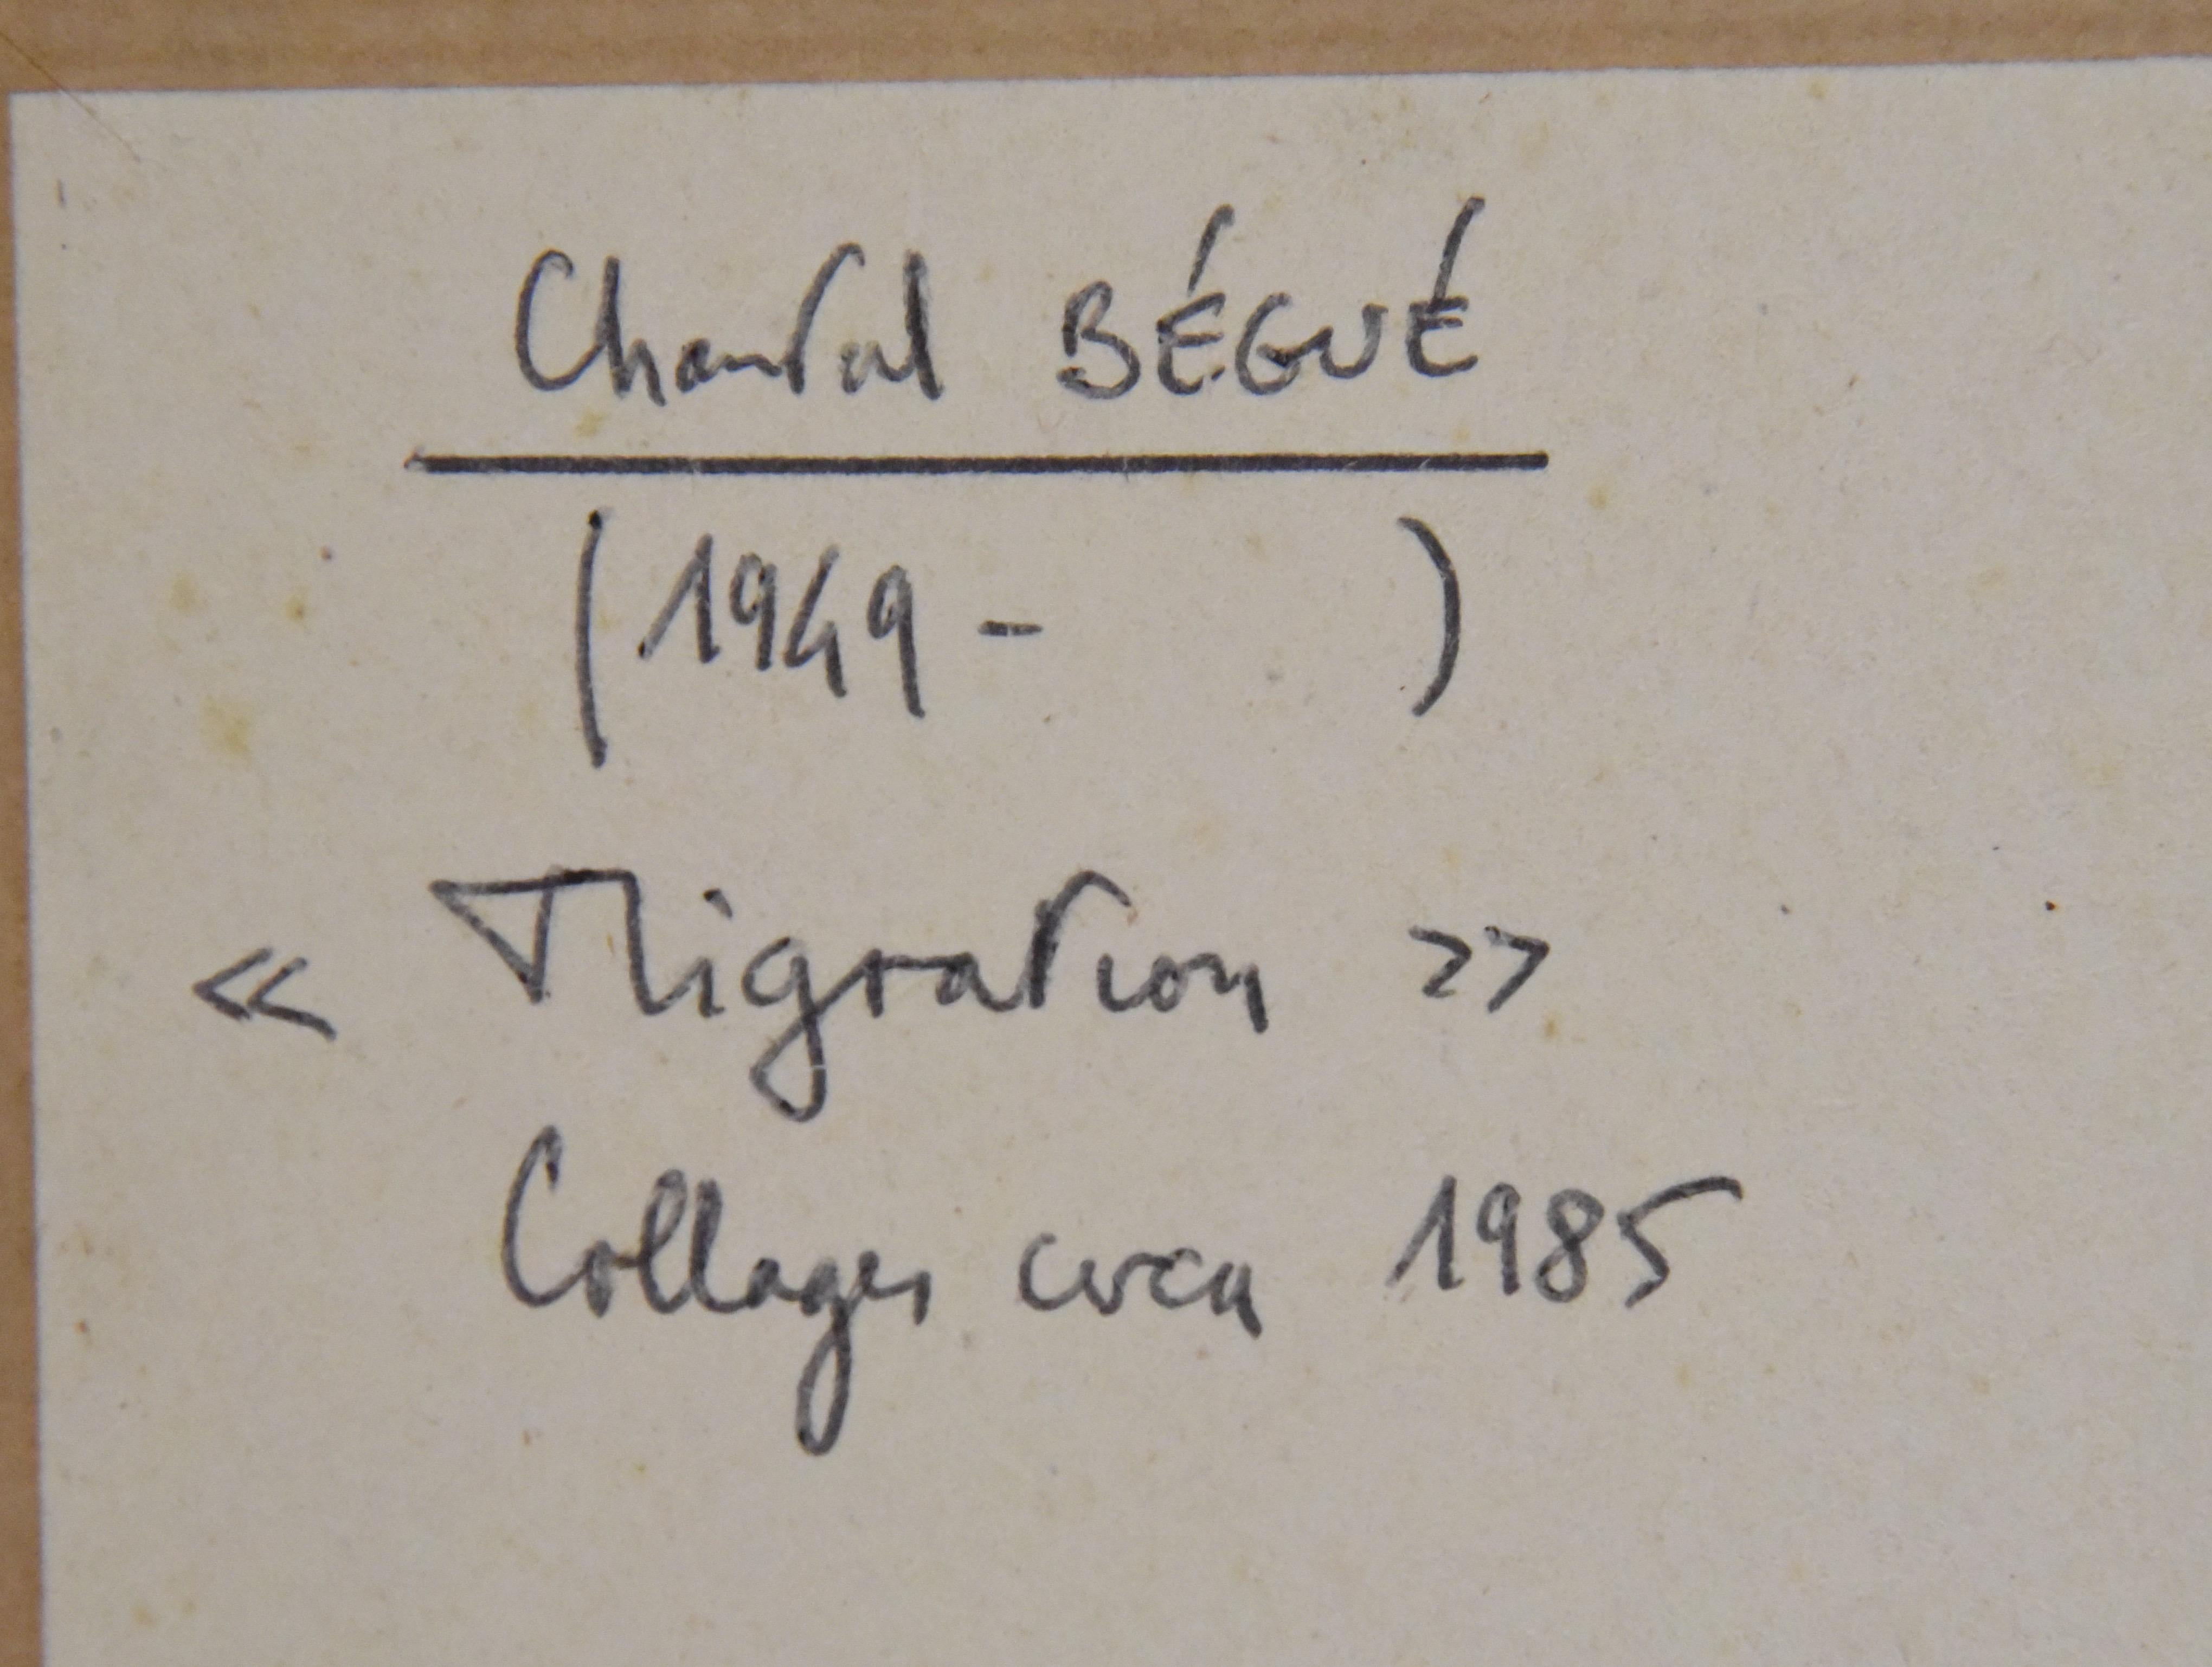 Chantal BÉGUÉ
(1949 - )
« Migration »
Collages circa 1985